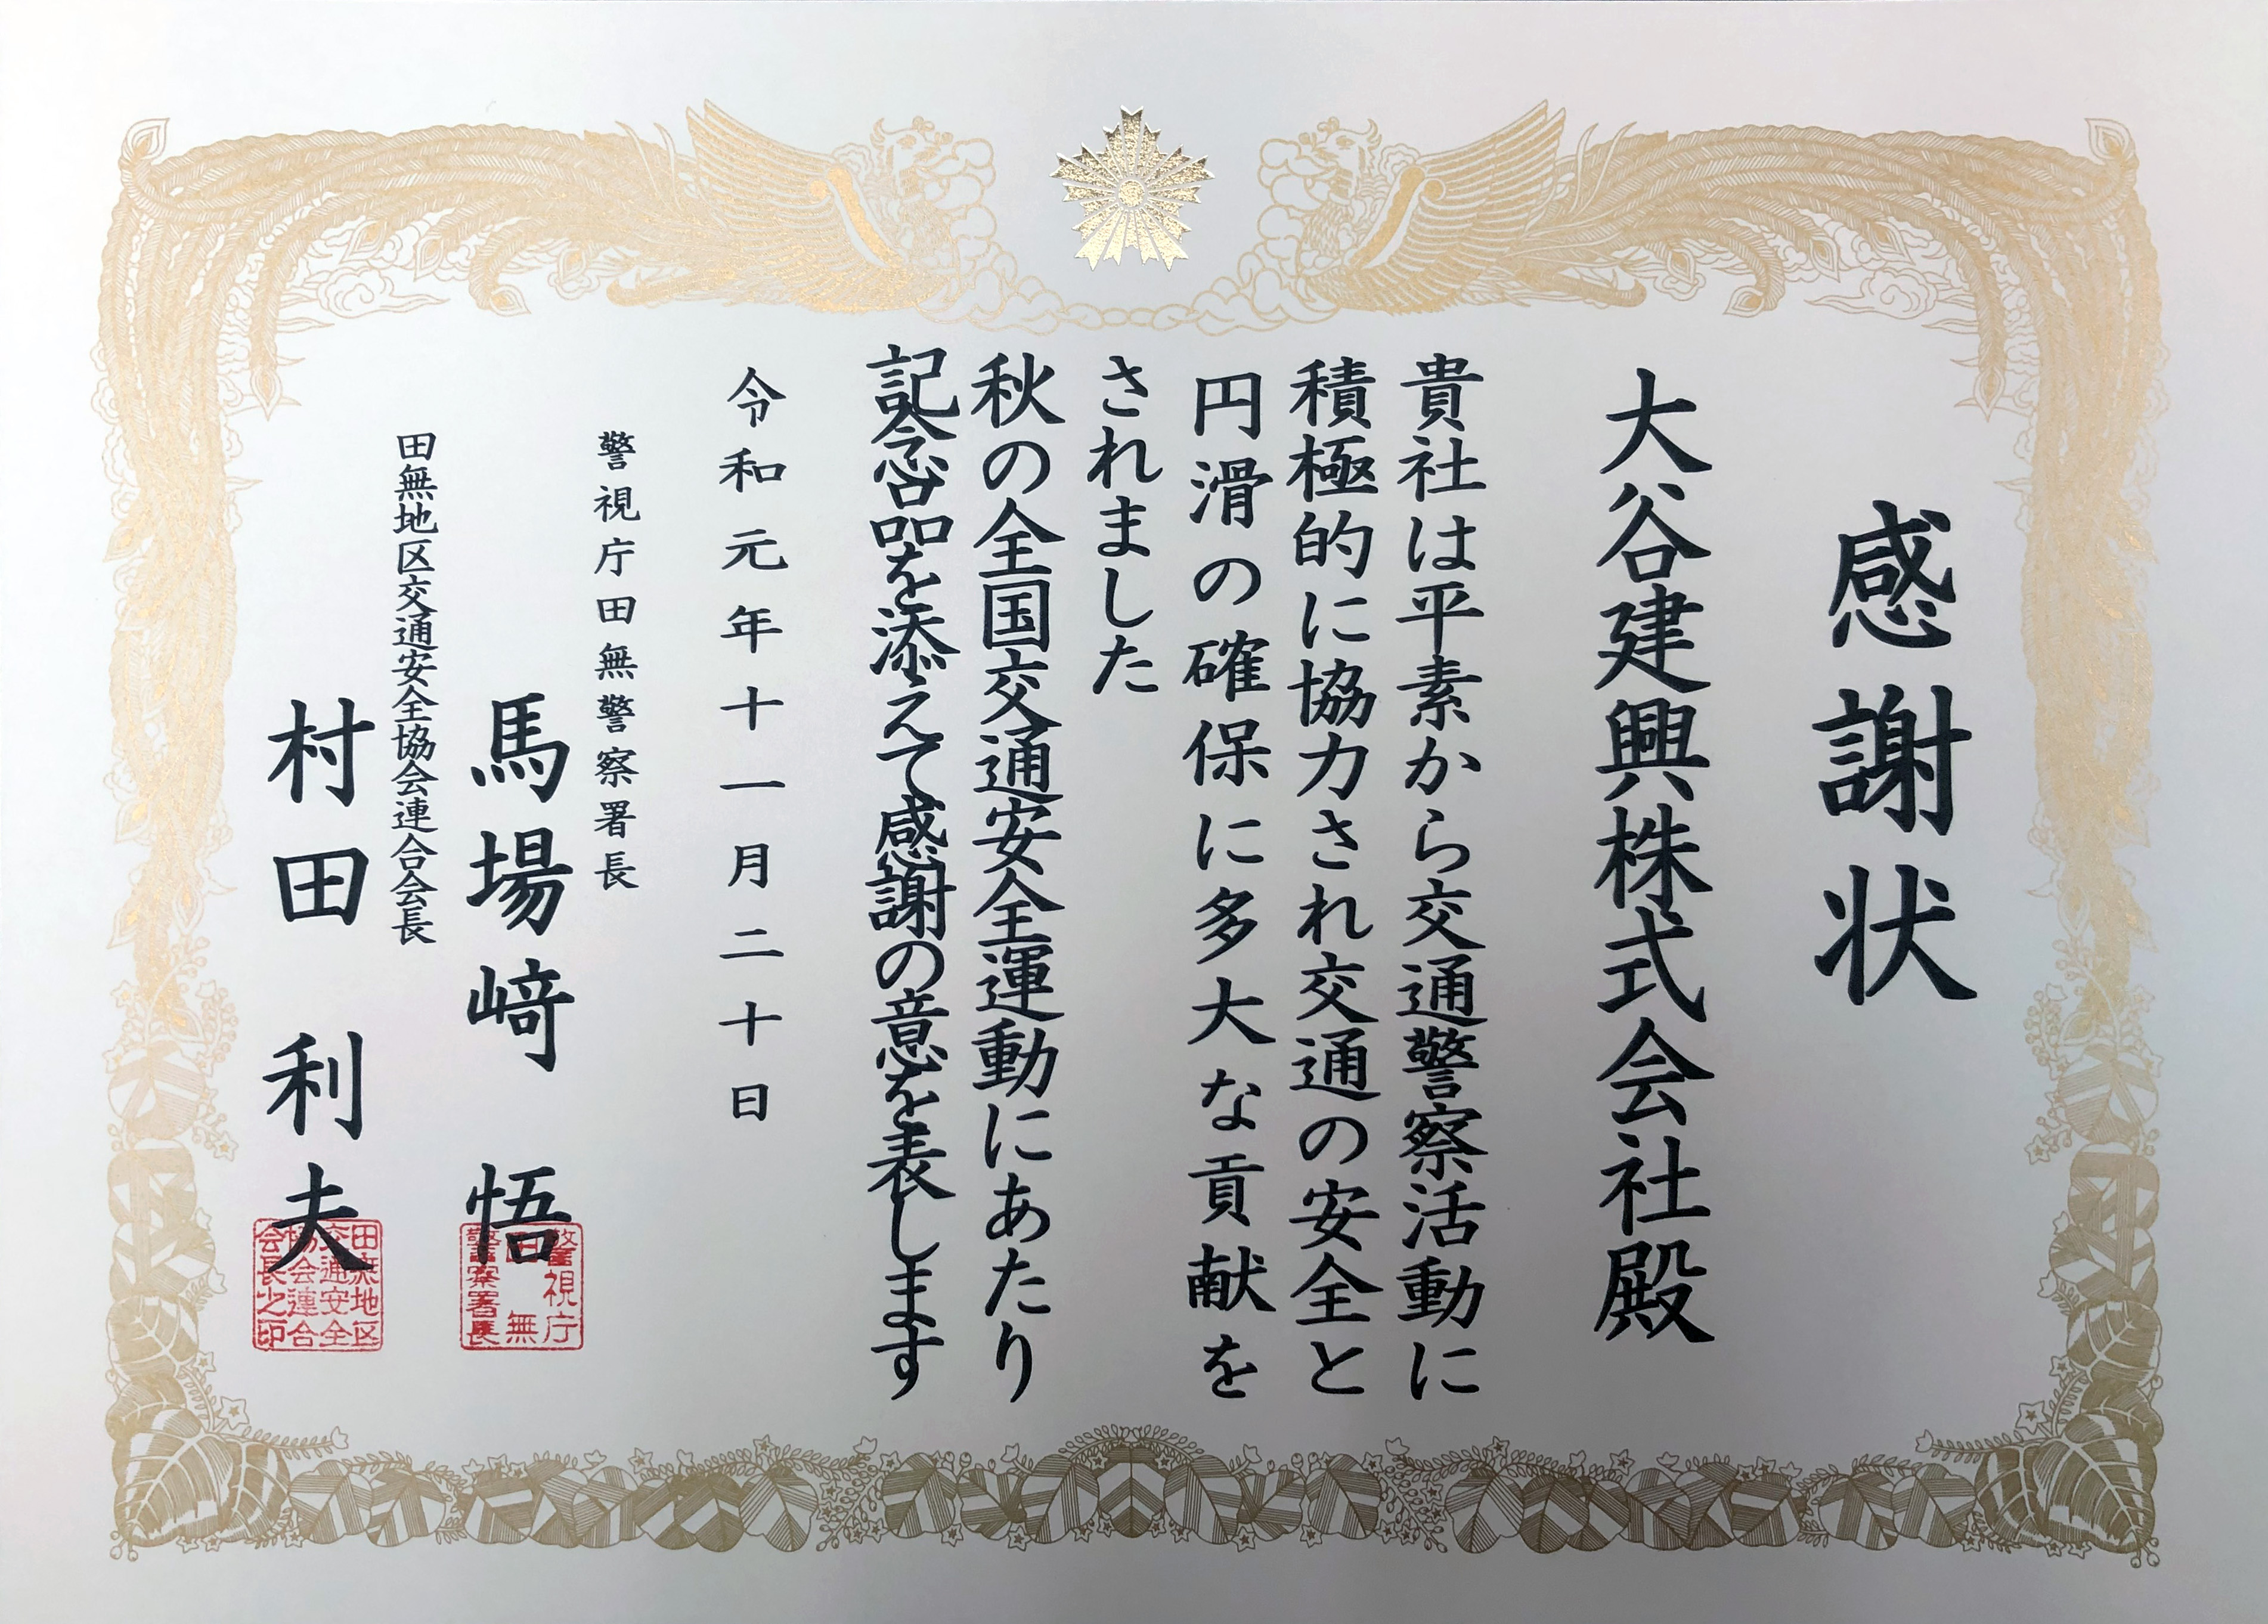 感謝状
大谷建興株式会社殿
貴社は平素から交通警察活動に
積極的に協力され交通の安全と
円滑の確保に多大な貢献を
されました
秋の全国交通安全運動にあたり
記念品を添えて感謝の意を表します
令和元年十一月二十日
警視庁田無警察署長
馬場﨑 悟
警視庁
田無
警察署長
田無地区交通安全協会連合会長
村田利夫
田無地区
交通安全
協会連合
会長之印